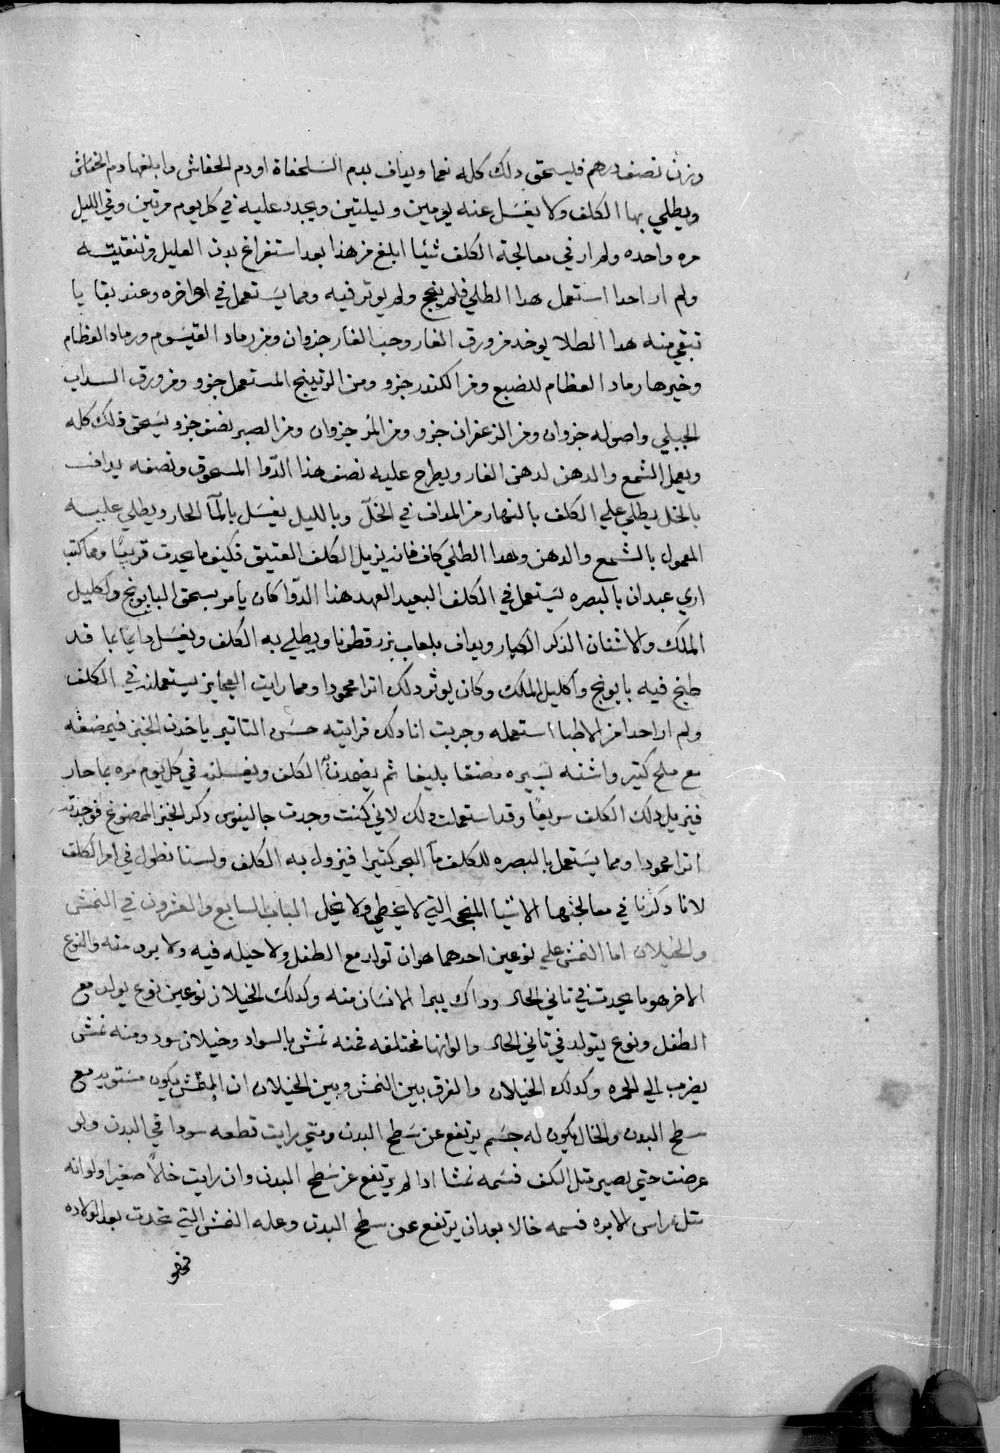 وزن نصف درهم فليسحق دلك كله نعما ويداف بدم السلحفاة او دم الخفاش وابلغها دم الخفاش
ويطلي بها الكلف ولا يغسل عنه يومين وليلتين ويجدد عليه في كل يوم مرتين وفي الليل
مره واحده ولم ار في معالجة الكلف شيئا ابلغ من هذا بعد استفراغ بدن العليل وتنقيته
ولم ار احدا استعمل هدا الطلي فلم ينجح ولم يوثر فيه ومما يستعمل في اواخره وعند بقايا
تبقي منه هدا الطلا يوخد من ورق الغار وحب الغار جزوان ومن رماد القيسوم ورماد العظام
وخيرها رماد العظام للضبع ومن الكندر جزو ومن الزنينج المستعمل جزو ومن ورق السداب
الجبلي واصوله جزوان ومن الزعفران جزو ومن المر جزوان ومن الصبر نصف جزو يسحق ذلك كله
ويعمل الشمع والدهن لدهن الغار ويطرح عليه نصف هذا الدوا المسحوق ونصفه يداف
بالخل يطلي علي الكلف بالنهار من المداف في الخل وبالليل يغسل بالمآ الحار ويطلي عليه
المعمول بالشمع والدهن وهدا الطلي كاف فانه يزيل الكلف العتيق فكيف ما يحدث قريبًا ومما كنت
اري عبدان بالبصره يستعمل في الكلف البعيد العهد هذا الدوا كان يامر بسحق البابونج واكليل
الملك والاشنان الذكر الكبار ويداف بلعاب بزر قطونا ويطلي به الكلف ويغسل دايمًا بما قد
طبخ فيه بابونج واكليل الملك وكان يوثر دلك اثرا محمودا ومما رايت العجايز يستعملنه في الكلف
ولم ار احدا من الاطبا استعمله وجربت انا دلك فرايته حسن التاثير ياخدن الخبز فيمضغنه
مع ملح كثير واشنه يسيره مضغا بليغا ثم يضمدن الكلف ويغسلنه في كل يوم مره بما حار
فيزيل دلك الكلف سريعًا وقد استعملت دلك لاني كنت وجدت جالينوس دكر الخبز الممضوغ فوجدت
اثرا محمودا ومما يستعمل بالبصره للكلف مآ البحر كثيرا فيزول به الكلف ولسنا نطول في امر الكلف
لانا دكرنا في معالجتها الاشيا المنجحه التي لا تخطي ولا تخل الباب السابع والعشرون في النمش
والخيلان اما النمش علي نوعين احدهما هو ان تولد مع الطفل ولا حيله فيه ولا برو منه والنوع
الاخر هو ما يحدث في ثاني الحال وداك يبرا الانسان منه وكدلك الخيلان نوعين نوع يولد مع
الطفل ونوع يتولد في ثاني الحال والوانها مختلفه فمنه نمش بالسواد وخيلان سود ومنه نمش
يضرب الي الحمره وكدلك الخيلان والفرق بين النمش وبين الخيلان ان النمش يكون مستويه مع
سطح البدن والخال يكون له جسم يرتفع عن سطح البدن ومتي رايت قطعه سودا في البدن ولو
عرضت حتي يصير مثل الكف فسمه نمشا ادا لم يرتفع عن سطح البدن وان رايت خالًا صغيرا ولو انه
مثل راس الابره فسمه خالا بعد ان يرتفع عن سطح البدن وعله النمش التي تحدث بعد الولاده